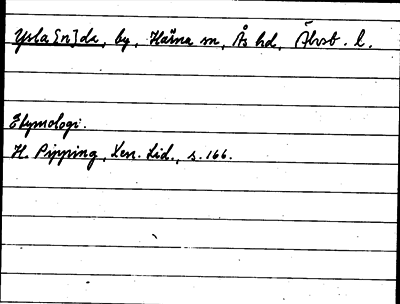 Ysla[n]da, by, Härna sn, Ås hd, Älvsb. l.
Etymologi.
H. Pipping, Xen. Lid., s. 166.